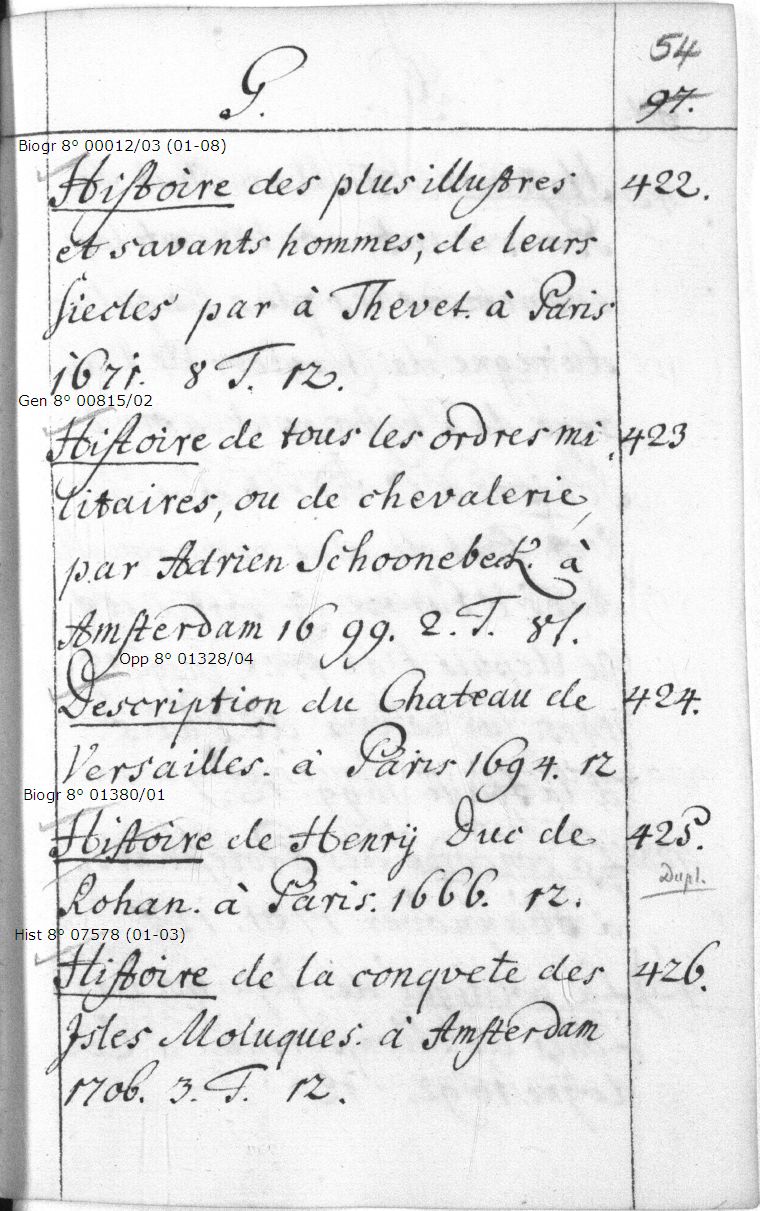 54
G.
97.
Biogr 8° 00012/03 (01-08)
Histoire des plus illustres 422.
et savants hommes, de leurs
siecles par à Thevet. à Paris
1671. 8 T. 12.
Gen 8° 00815/02
Histoire de tous les ordres mi 423
litaires, ou de chevalerie,
par Adrien Schoonebeck. à
Amsterdam 1699. 2. T. 8f.
Opp 8° 01328/04
Description du Chateau de 424.
Versailles. à Paris 1694. 12
Biogr 8° 01380/01
Histoire de Henry Duc de 425.
Dupl.
Rohan. à Paris. 1666. 12.
Hist 8° 07578 (01-03)
Histoire de la conquete des 426.
Isles Moluques. à Amsterdam
1706. 3. T. 12.